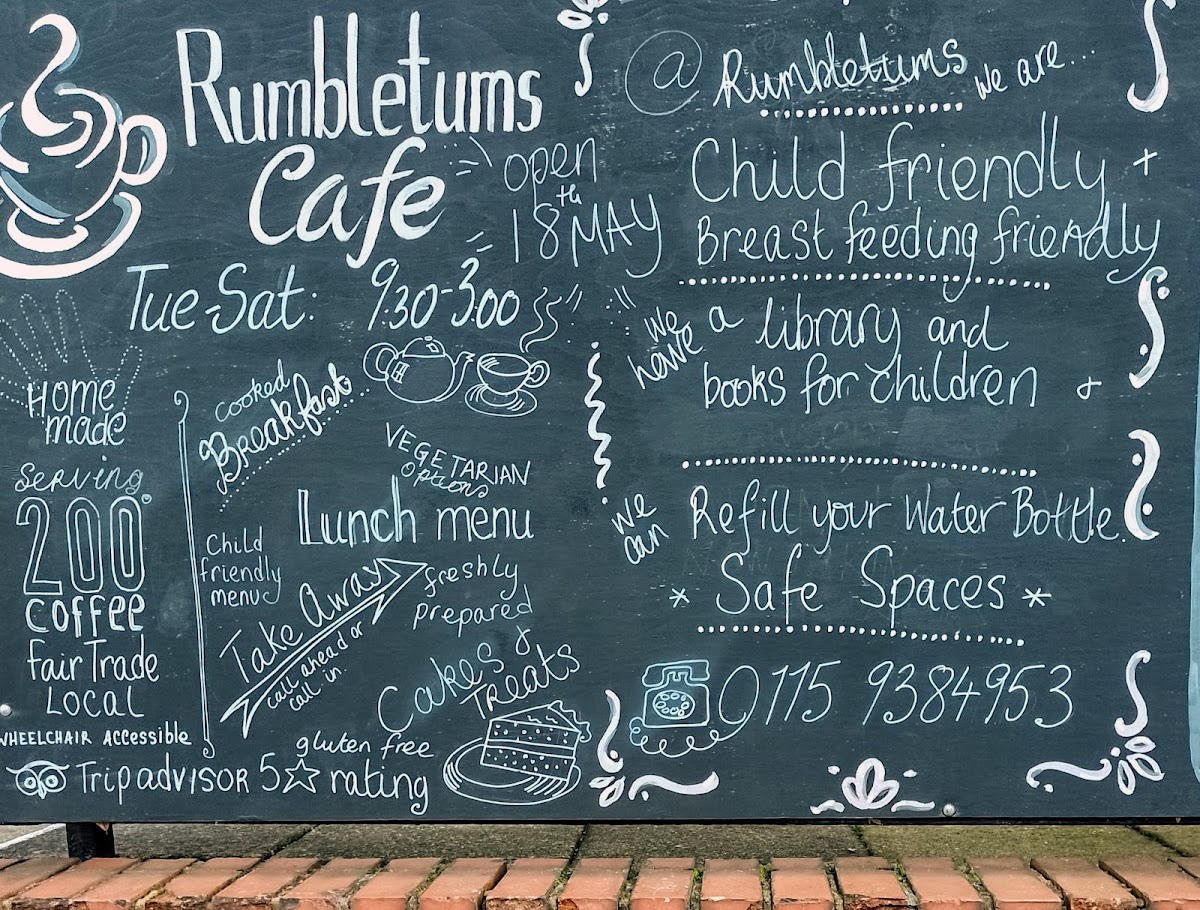 Rumbletums
Cafe
open
18th MAY
Tue-Sat: 9:30-3:00
HOME
made
Serving
200°
coffee
fairTrade
LOCAL
WHEELCHAIR Accessible
Tripadvisor 5☆ rating
cooked
Breakfast
VEGETARIAN
options
Lunch menu
Child
friendly
menu
Take Away
call ahead or
call in.
freshly
prepared
Cakes &
Treats
gluten free
@ Rumbletums we are...
Child friendly +
Breast feeding friendly
we have a library and
books for children &
we can Refill your Water Bottle.
* Safe Spaces *
0115 9384953